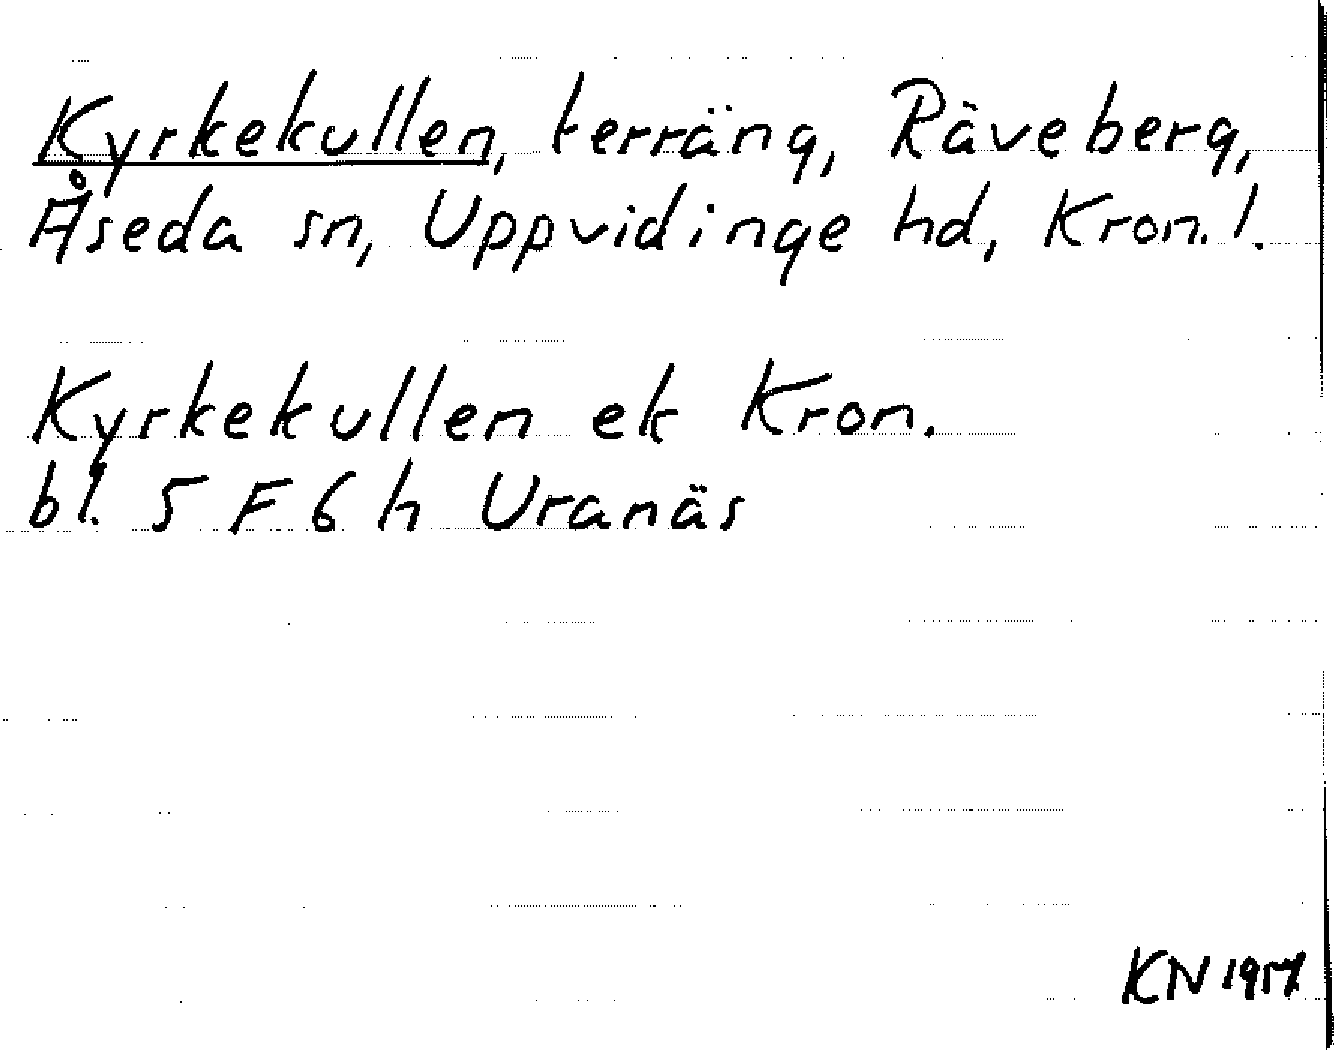 Kyrkekullen, terräng, Räveberg,
Åseda sn, Uppvidinge hd, Kron. l.
Kyrkekullen ek Kron.
bl. 5 F 6 h Uranäs
KN 1957